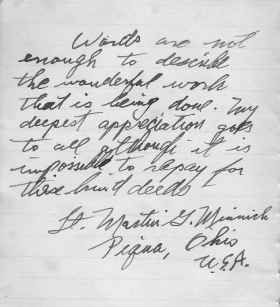 Words are not
enough to describe
the wonderful work
that is being done. My
deepest appreciation goes
to all although it is
impossible to repay for
these kind deeds
Lt. Martin G. Minnich
Piqua, Ohio
U.S.A.